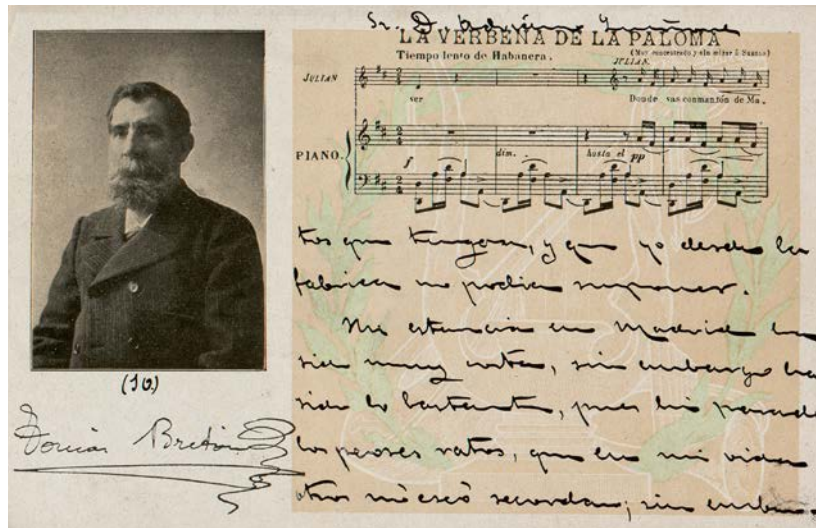 Sr. D.
LA VERBENA DE LA PALOMA
Tiempo lento de Habanera.
(Muy concentrado y sin mirar à Susana)
JULIAN
JULIAN.
ver
Donde vas con mantón de Ma_
PIANO.
f
dim.
hasta el pp
tos que tengan, y que yo desde la
fabrica no podia suponer.
Mi estancia en Madrid ha
sido muy corta, sin embargo ha
sido lo bastante, pues he pasado
los peores ratos, que en mi vida
otros recordar; sin embar-
(10)
Tomás Bretón